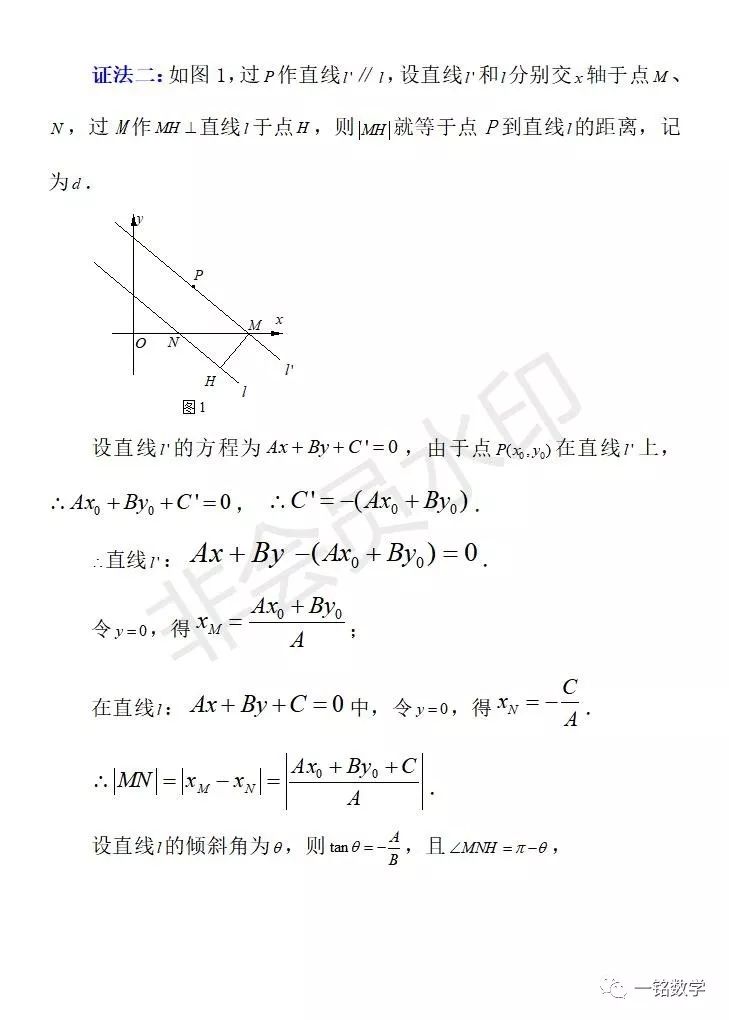 证法二：如图 1，过 P 作直线 l' ∥ l，设直线 l' 和 l 分别交 x 轴于点 M、
N，过 M 作 MH ⊥ 直线 l 于点 H，则 |MH| 就等于点 P 到直线 l 的距离，记
为 d．
y
P
M
x
O
N
H
l
l'
图1
设直线 l' 的方程为 Ax + By + C ' = 0，由于点 P(x₀ , y₀) 在直线 l' 上，
∴ Ax₀ + By₀ + C ' = 0， ∴ C ' = −(Ax₀ + By₀)．
∴直线 l'： Ax + By −(Ax₀ + By₀) = 0．
令 y = 0，得 x_M = (Ax₀ + By₀)/A；
在直线 l： Ax + By + C = 0 中，令 y = 0，得 x_N = −C/A．
∴ |MN| = |x_M − x_N| = |(Ax₀ + By₀ + C)/A|．
设直线 l 的倾斜角为 θ，则 tan θ = −A/B，且 ∠MNH = π − θ，
非会员水印
一铭数学